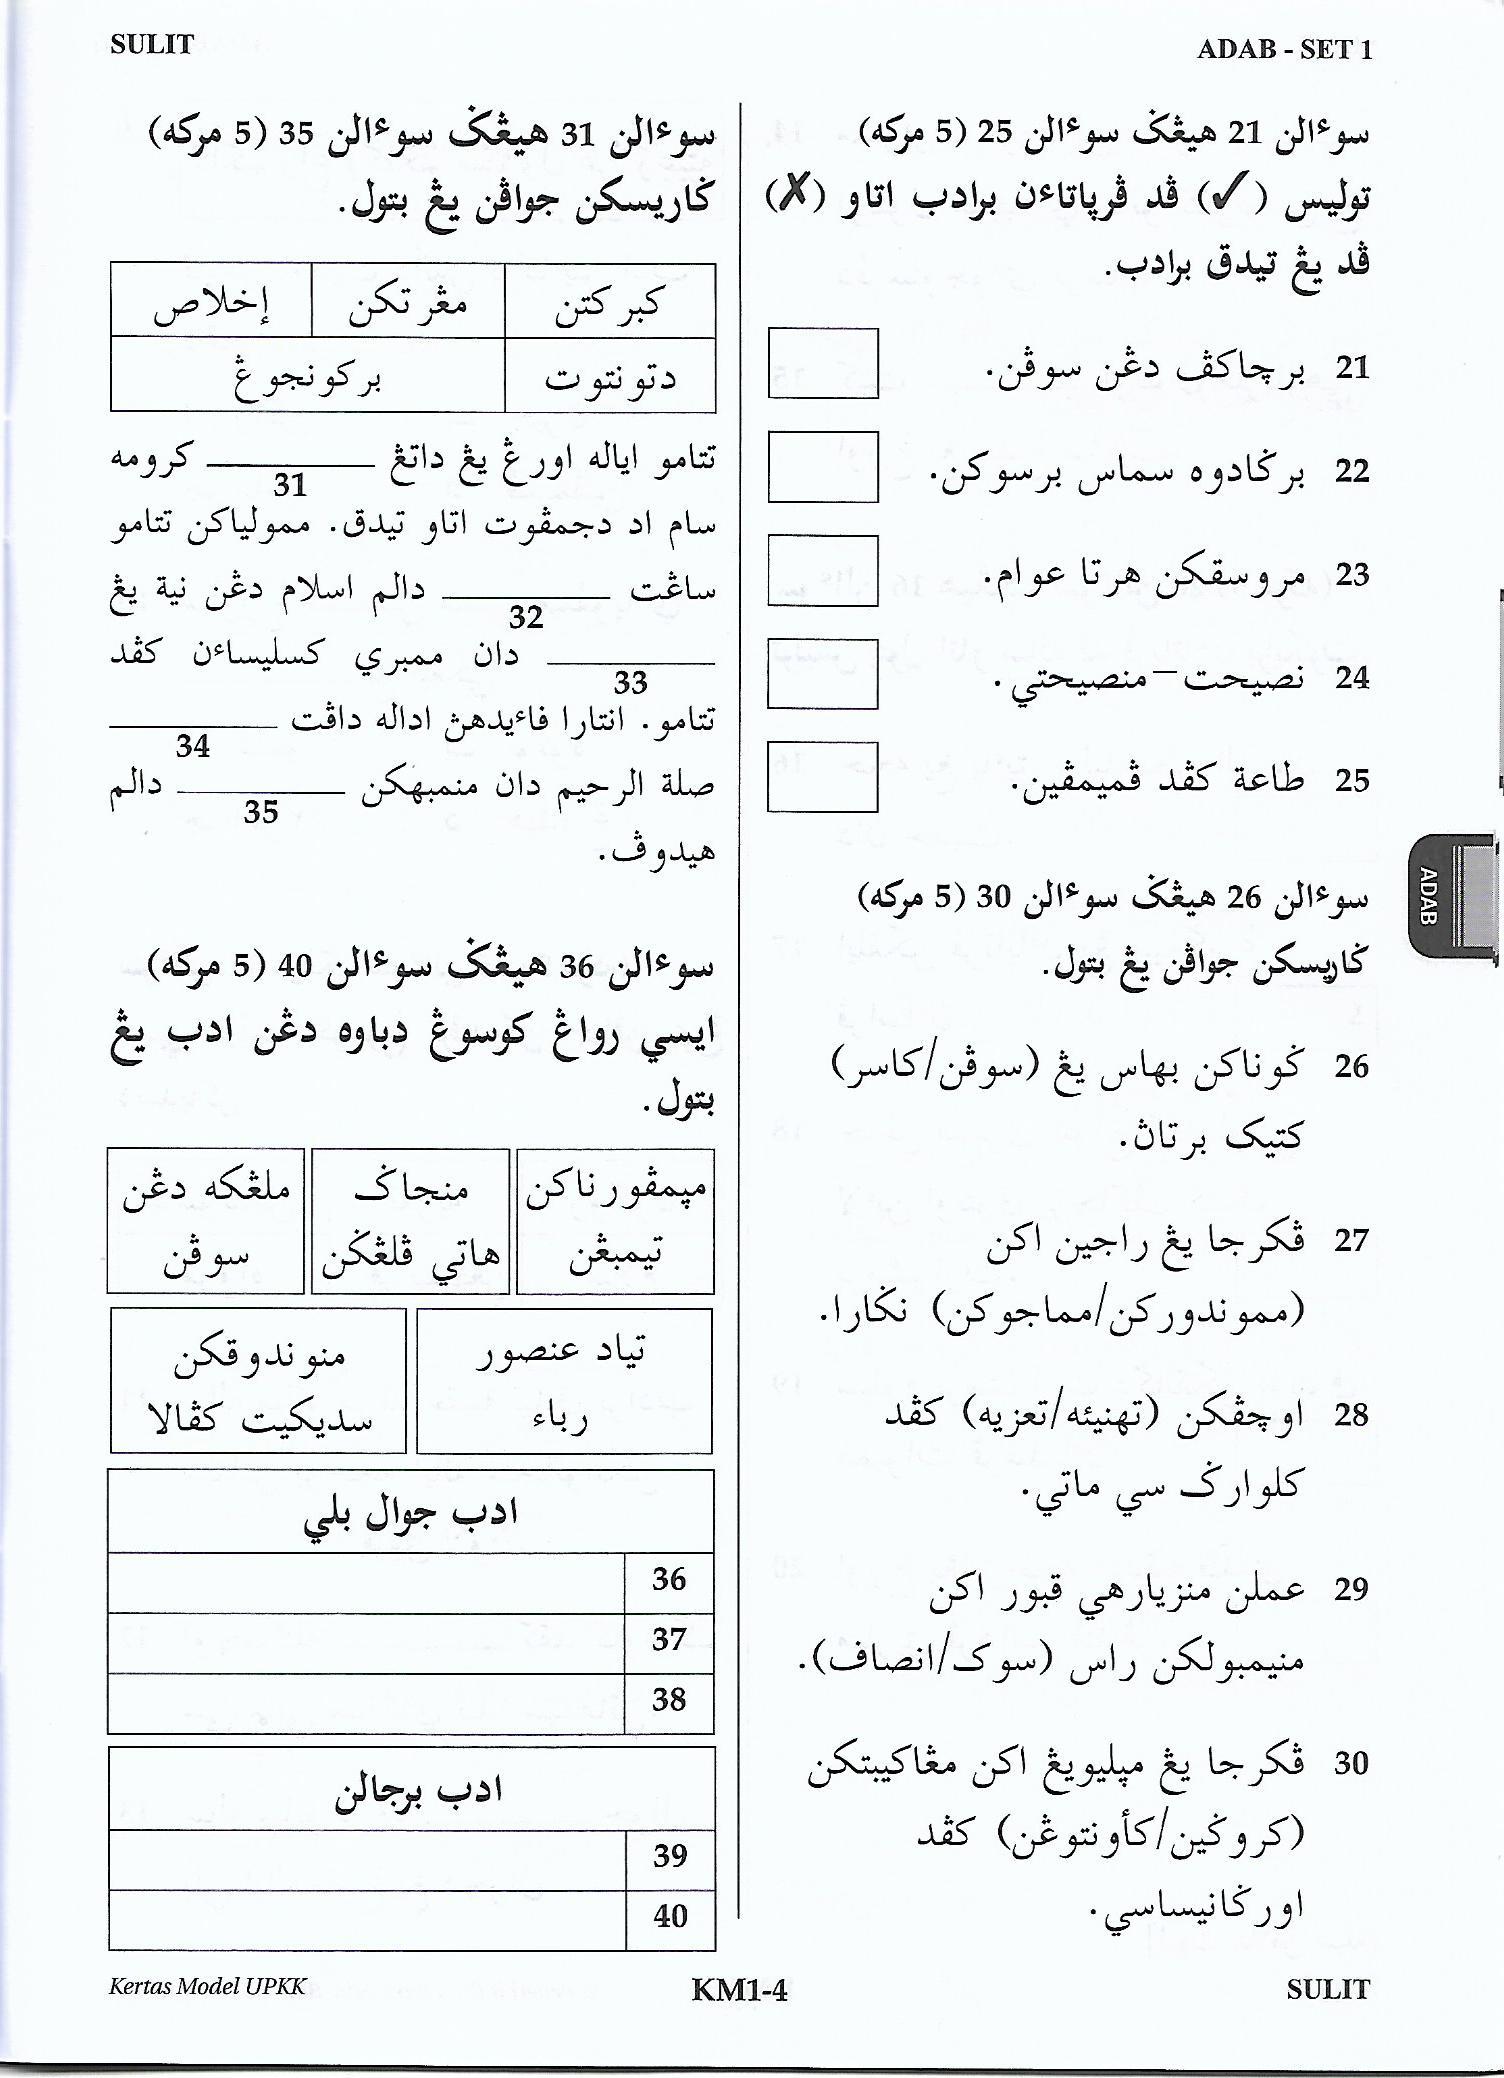 SULIT
ADAB - SET 1
سوءالن 21 هيڠݢ سوءالن 25 (5 مركه)
توليس (✓) ڤد ڤرڽاتاءن برادب اتاو (✗)
ڤد يڠ تيدق برادب.
21 برچاكڤ دڠن سوڤن.
22 برݢادوه سماس برسوكن.
23 مروسقكن هرتا عوام.
24 نصيحت-منصيحتي.
25 طاعة كڤد ڤميمڤين.
سوءالن 26 هيڠݢ سوءالن 30 (5 مركه)
ݢاريسكن جواڤن يڠ بتول.
26 ݢوناكن بهاس يڠ (سوڤن/كاسر)
كتيک برتاڽ.
27 ڤكرجا يڠ راجين اكن
(مموندوركن/مماجوكن) نݢارا.
28 اوچڤكن (تهنيئه/تعزيه) كڤد
كلوارݢ سي ماتي.
29 عملن منزيارهي قبور اكن
منيمبولكن راس (سوک/انصاف).
30 ڤكرجا يڠ ڽليويڠ اكن مڠاكيبتكن
(كروݢين/كأونتوڠن) كڤد
اورݢانيساسي.
سوءالن 31 هيڠݢ سوءالن 35 (5 مركه)
ݢاريسكن جواڤن يڠ بتول.
كبركتن
مڠرتكن
إخلاص
دتونتوت
بركونجوڠ
تتامو اياله اورڠ يڠ داتڠ ______ كرومه
31
سام اد دجمڤوت اتاو تيدق. ممولياكن تتامو
ساڠت ______ دالم اسلام دڠن نية يڠ
32
______ دان ممبري كسليساءن كڤد
33
تتامو. انتارا فاءيدهڽ اداله داڤت ______
34
صلة الرحيم دان منمبهكن ______ دالم
35
هيدوڤ.
سوءالن 36 هيڠݢ سوءالن 40 (5 مركه)
ايسي رواڠ كوسوڠ دباوه دڠن ادب يڠ
بتول.
مڽمڤورناكن
تيمبڠن
منجاݢ
هاتي ڤلڠݢن
ملڠكه دڠن
سوڤن
تياد عنصور
رباء
منوندوقكن
سديكيت كڤالا
ادب جوال بلي
36
37
38
ادب برجالن
39
40
ADAB
Kertas Model UPKK
KM1-4
SULIT